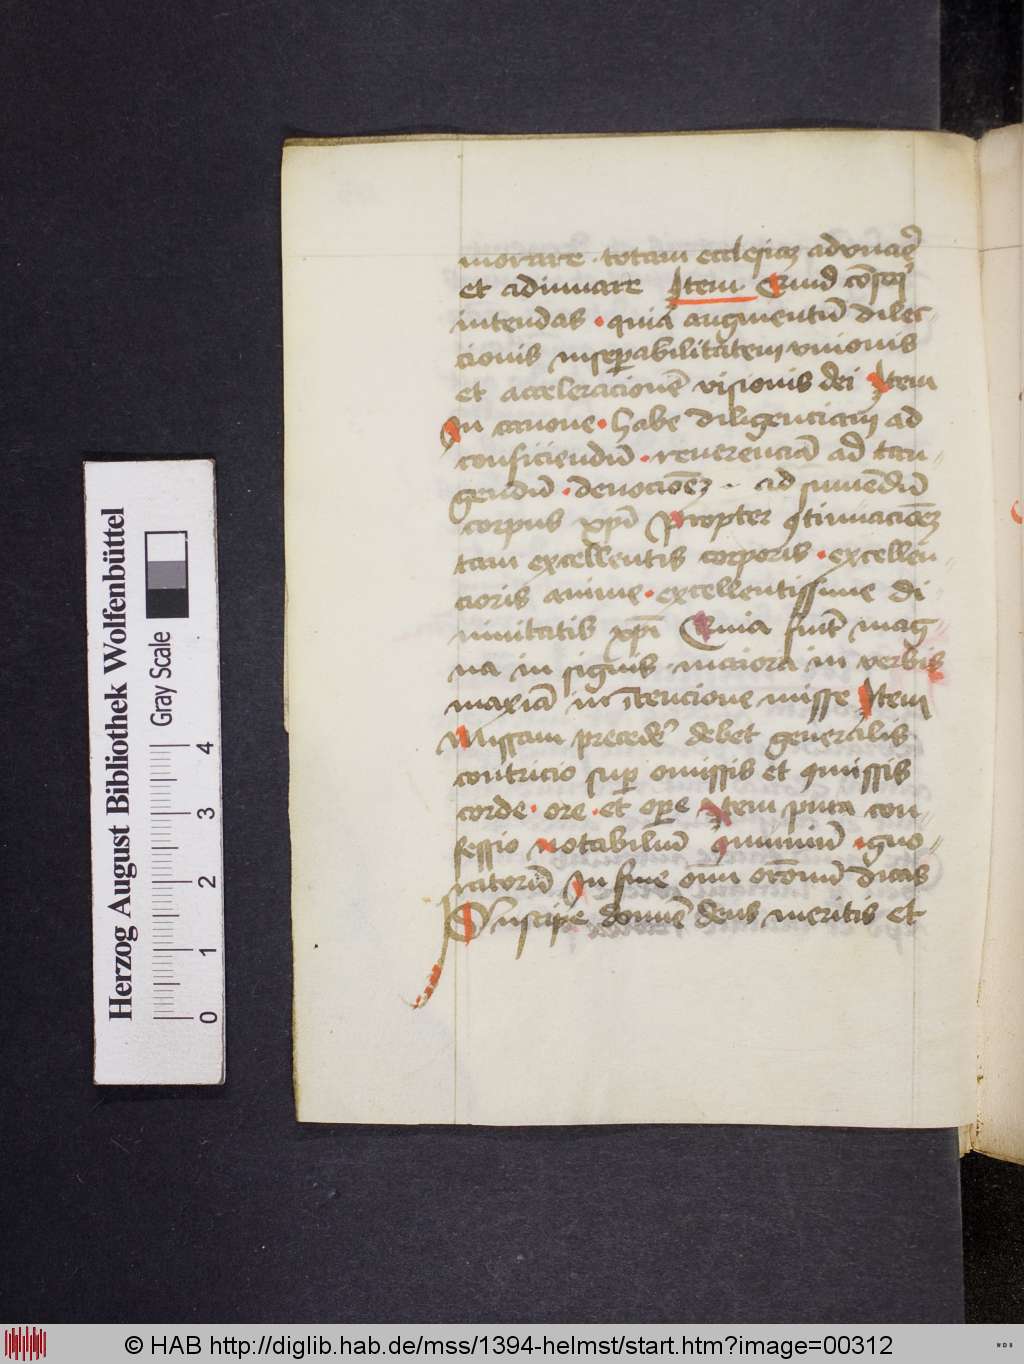 morare · totam ecclesiaz
et adiuuare Item Quid
intendas · quia augmentū dilec-
cionis inseparabilitatem vnionis
et acceleracionē visionis dei Item
In canone · habe diligenciam ad
conficiendū · reuerenciā ad tan-
gendū · deuociōēz · ad sumēdū
corpus xp̄i Propter 9tinuaciōēz
tam excellentis corporis · excellen-
cioris anime · excellentissime di
uinitatis xp̄i Quia sunt mag-
na in signis · maiora in verbis
in ītencione misse Item
Missam debet generalis
contricio sup̄ omissis et 9missis
corde · ore · et ope Item pura con-
fessio notabiliū ·
In fine dicas
Suscipe domīe deus meritis et
Herzog August Bibliothek Wolfenbüttel
Gray Scale
0 1 2 3 4
© HAB http://diglib.hab.de/mss/1394-helmst/start.htm?image=00312